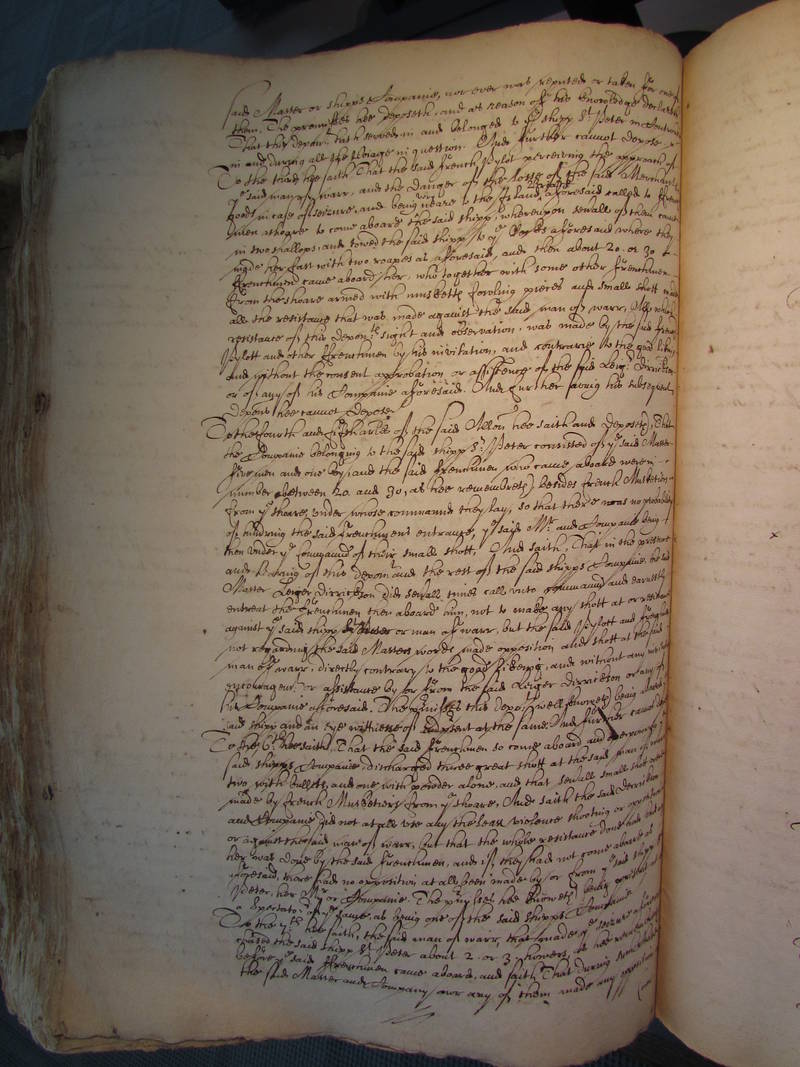 said Master or shipps Companie, nor ever was reputed or taken for one of
them. The premisses hee deposeth, and as reason of his knowledge declareth
That this depon.t hath served in and belonged to y.e shipp S.t Peter in
in and during all the Voiage in question. And further cannot depose
To the third hee saith That the said french Pylot perceiving the approach of
y.e said man of warr, and the danger of the losse of the said Merchants
goods in case of seizure, and being neare to the Island aforesaid called to french
men ashoare to come aboard the said shipp, whereupon severall of them came
in two shallops, and towed the said shipp to y.e aforesaid where they
made her fast with two roapes as aforesaid, and then about 20. or 30
frenchmen came aboard her, who together with some other frenchmen
from the shoare armed with musketts fowling pieces and smalle shott made
all the resistance that was made against the said man of warr, All which
resistance of this depon.ts sight and observation, was made by the said french
Pylott and other frenchmen by his invitation, and contrarie to the
and without the consent approbation or assistence of the said Leiger Dirrickson
or of any of his Companie aforesaid. And further saving his subsequent
depons hee cannot depose
To the fourth and fifth arles of the said Allon hee saith and deposeth, That
the Companie belonging to the said shipp S.t Peter consisted of y.e said Master
five men and one boy, and the said frenchmen who came aboard were in
number between 20 and 30, as hee remembreth) besides french Muskettiers
from y.e shoare, under whose command they lay, so that there was no probability
of hindring the said frenchmens entrance, y.e said M.r and Companie being
then under y.e command of their small shott, And saith, That in the presence
and hearing of this depon.t and the rest of the said shipps Companie the said
Master Leiger Dirrickson did severall times call unto command and earnestly
entreat the frenchmen then aboard him, not to make any shott at or resistance
against y.e said shipp or man of warr, but the said Pylott and frenchmen
not regarding the said Masters words made opposition and shott at the said
man of warr, directly contrary to the and without any
encouragem.t or assistance by or from the said Leiger Dirrickson or any of
his Companie aforesaid. The premisses this depo.t well knoweth being aboard
said shipp and an eye wittnesse of and present at the same. And further cannot depose
To the 6.th hee saith, That the said frenchmen so come aboard and
said shipps Companie discharged three great shott at the said man of warr
two with bulletts, and one with powder alone, and that severall small shott were
made by french Muskettiers from y.e shoare, And saith the said Dirrickson
and Companie did not at all use any the least violence shooting or opposition
or against the said man of warr, but that the whole resistance done
her was done by the said frenchmen, and if they had not come aboard as
aforesaid, there had no opposition at all been made by or from y.e said shipp S.t
Peter, her M.r or Companie. The premisses hee knoweth being present and
a spectato.r of y.e same as being one of the said shipps Companie
To the 7.th hee saith, the said man of warr, that made y.e seizure
chased the said shipp S.t Peter about 2. or 3 howers, as hee remembreth
before y.e said frenchmen came aboard, and saith That during
the said Master and Company nor any of them made any